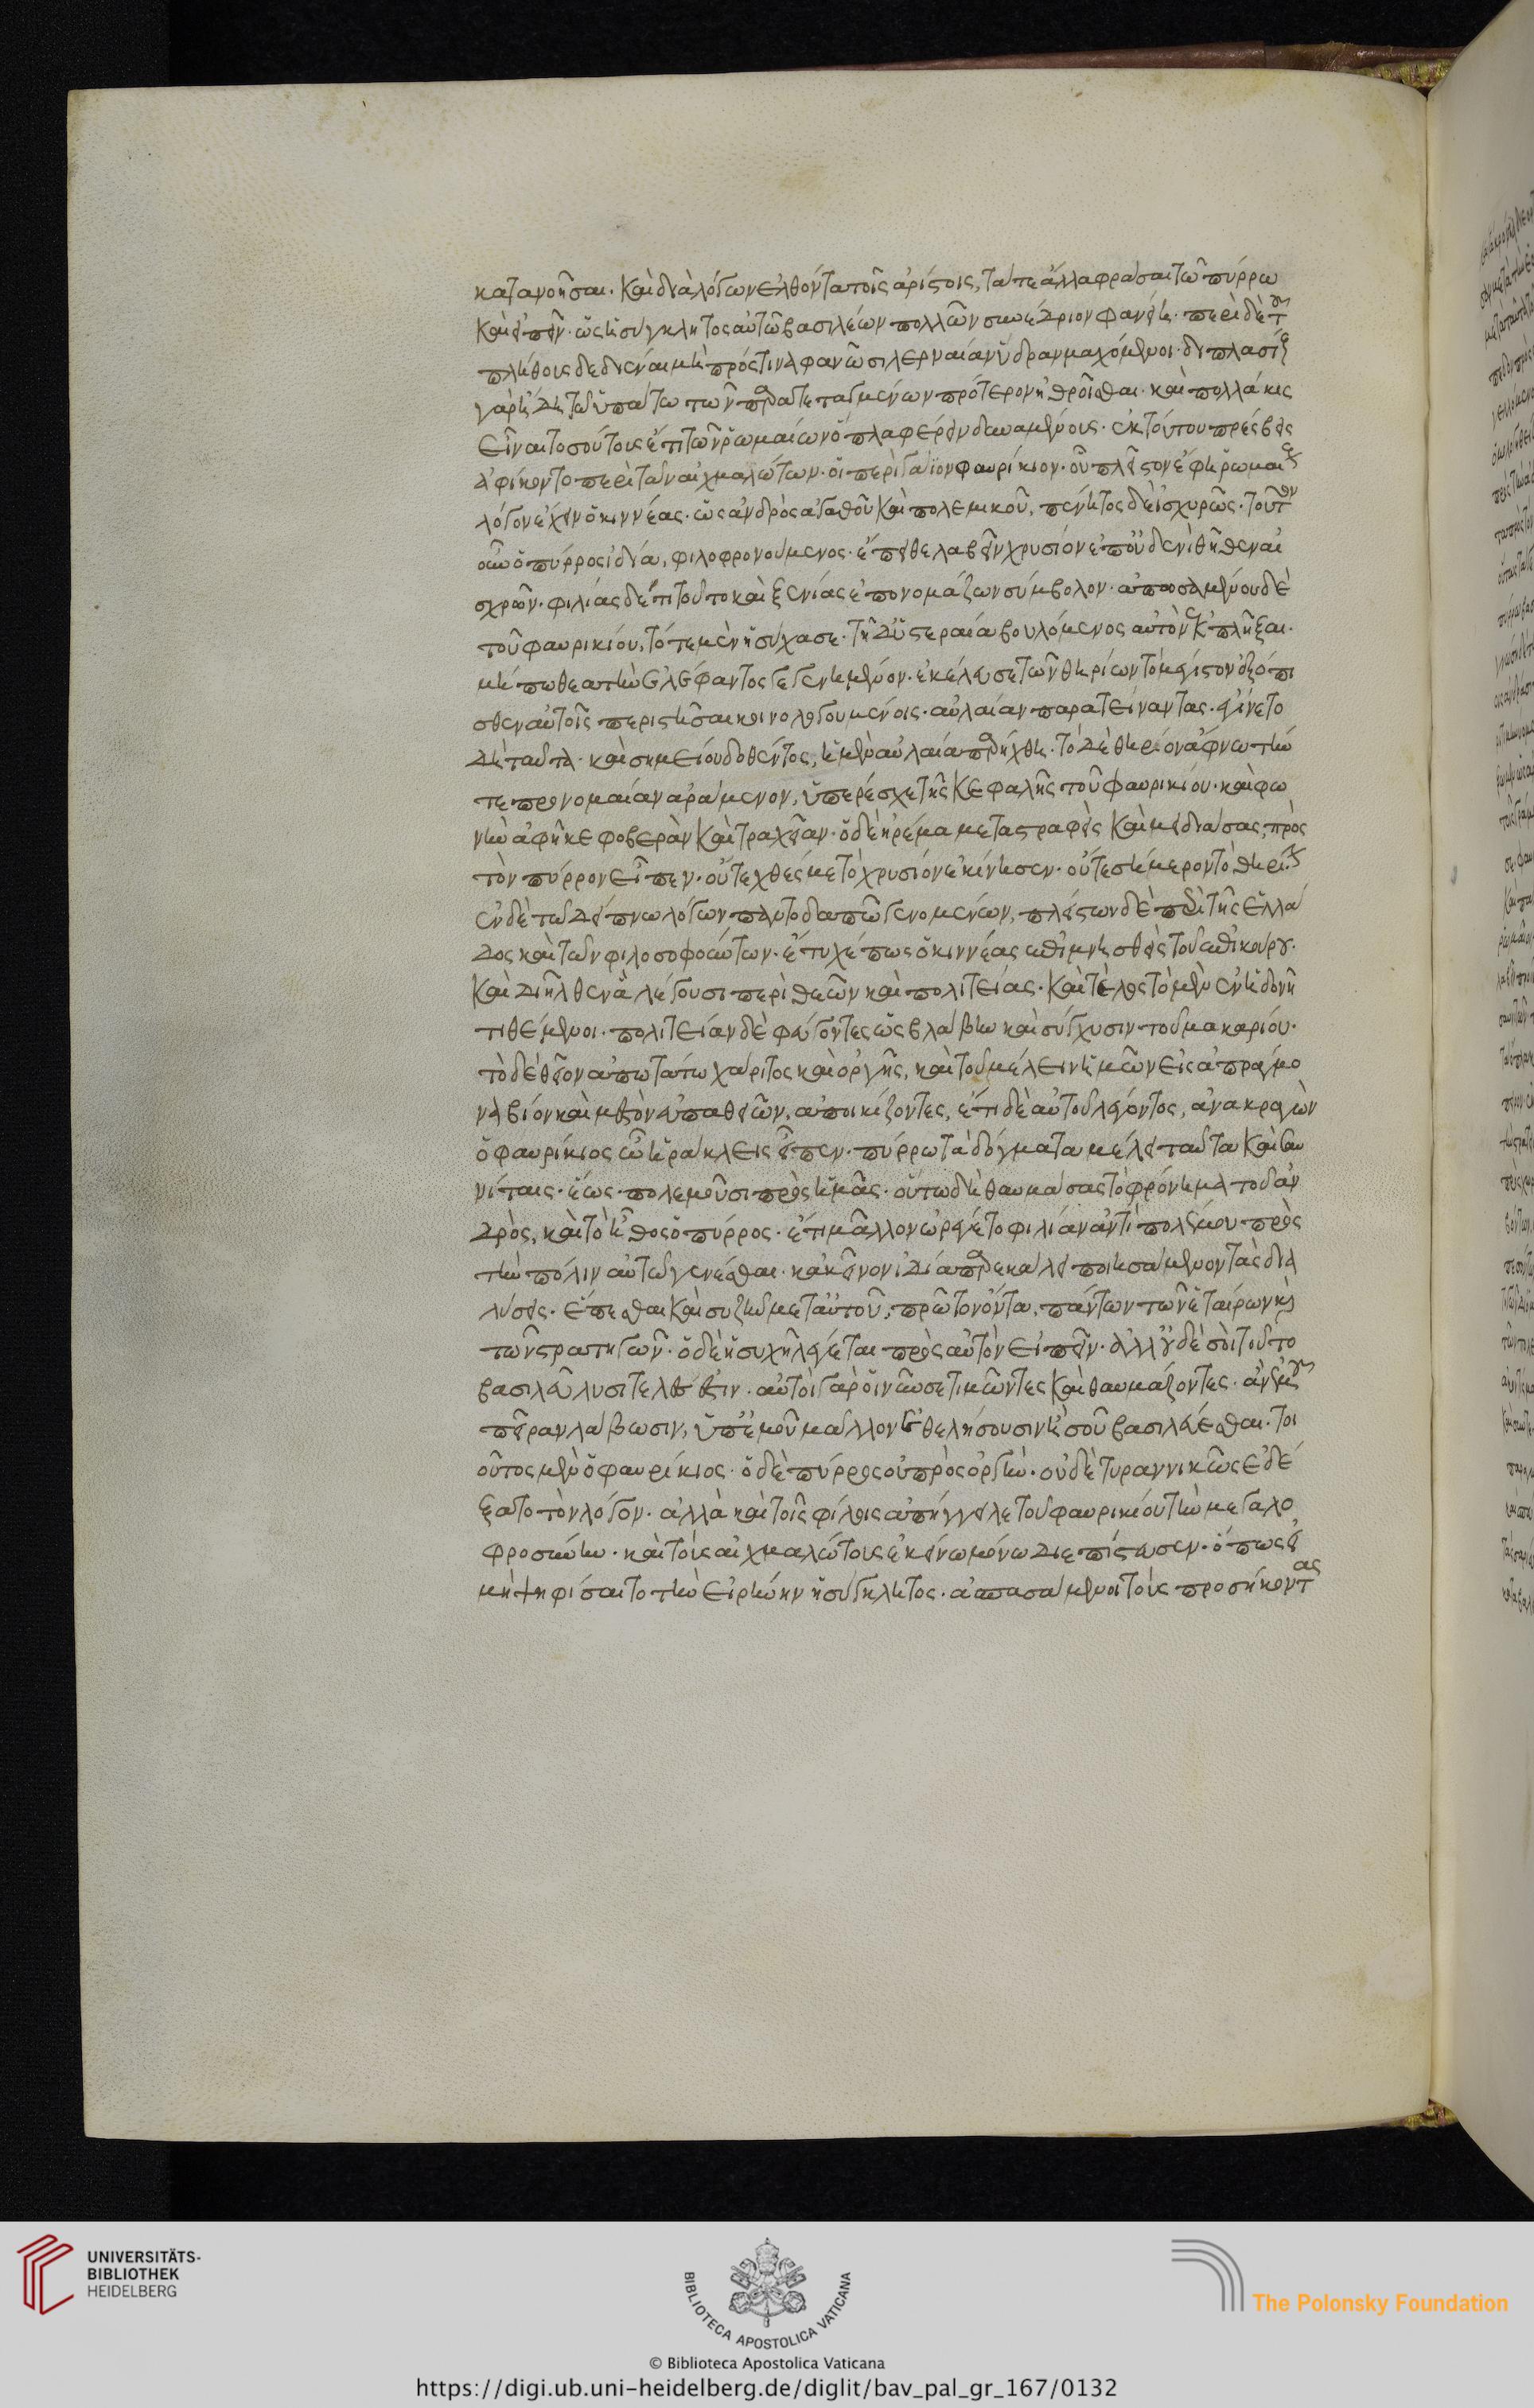 κατανοῆσαι· καὶ διὰ λόγων ἐλθόντα τοῖς ἀρίστοις, τά τε ἄλλα φράσαι τῷ πύρρω
καὶ εἰπεῖν· ὡς ἡ σύγκλητος αὐτῶ βασιλέων πολλῶν συνέδριον φανείη· περὶ δὲ τοῦ
πλήθους δεδιέναι μὴ πρός τινα φανῶσι λερναίαν ὕδραν μαχόμενοι· διπλασίους
γὰρ ἤδη τῶ ὑπάτω τῶν παρατεταγμένων πρότερον ἠθροῖσθαι· καὶ πολλάκις
εἶναι τοσούτους ἔτι τῶν ῥωμαίων ὅπλα φέρειν δυναμένους· ἐκ τούτου πρέσβεις
ἀφίκοντο περὶ τῶν αἰχμαλώτων· οἱ περὶ γαϊον φαυρίκιον· οὗ πλεῖστον ἔφη ῥωμαίους
λόγον ἔχειν ὁ κιννέας· ὡς ἀνδρὸς ἀγαθοῦ καὶ πολεμικοῦ, πένητος δὲ ἰσχυρῶς· τοῦτον
οὖν ὁ πύρρος ἰδία, φιλοφρονούμενος· ἔπειθε λαβεῖν χρυσίον ἐπ' οὐδενὶ δῆθεν αἰ
σχρῶ· φιλίας δέ τι τοῦτο καὶ ξενίας ἐπονομάζων σύμβολον· ἀπωσαμένου δὲ
τοῦ φαυρικίου, τότε μὲν ἡσύχασε· τῆ δ' ὑστεραία βουλόμενος αὐτὸν ἐκπλῆξαι·
μήπω θεατὴν ἐλέφαντος γεγενημένον· ἐκέλευσε τῶν θηρίων τὸ μέγιστον ἐξόπι
σθεν αὐτοῖς περιστῆσαι κοινολογουμένοις· αὐλαίαν παρατείναντας· ἐγίνετο
δὴ ταῦτα· καὶ σημείου δοθέντος, ἡ μὲν αὐλαία παρήχθη· τὸ δὲ θηρίον ἄφνω τήν
τε προνομαίαν ἀράμενον, ὑπερέσχε τῆς κεφαλῆς τοῦ φαυρικίου· καὶ φω
νὴν ἀφῆκε φοβερὰν καὶ τραχεῖαν· ὁ δὲ ἠρέμα μεταστραφεὶς καὶ μειδιάσας, πρὸς
τὸν πύρρον εἶπεν· οὔτε χθές με τὸ χρυσίον ἐκίνησεν· οὔτε σήμερον τὸ θηρίον
ἐν δὲ τῶ δείπνω λόγων παντοδαπῶν γενομένων, πλείστων δὲ περὶ τῆς ἑλλά
δος καὶ τῶν φιλοσοφούντων· ἔτυχέ πως ὁ κιννέας ἐπιμνησθεὶς τοῦ ἐπικούρου·
καὶ διῆλθεν ἃ λέγουσι περὶ θεῶν καὶ πολιτείας· καὶ τέλος τὸ μὲν ἐν ἡδονῆ
τιθέμενοι· πολιτείαν δὲ φεύγοντες ὡς βλάβην καὶ σύγχυσιν τοῦ μακαρίου·
τὸ δὲ θεῖον ἀπωτάτω χάριτος καὶ ὀργῆς, καὶ τοῦ μέλειν ἡμῶν εἰς ἀπράγμο
να βίον καὶ μεστὸν εὐπαθειῶν, ἀποικίζοντες, ἔτι δὲ αὐτοῦ λέγοντος, ἀνακραγὼν
ὁ φαυρίκιος ὦ ἡράκλεις εἶπεν· πύρρω τὰ δόγματα μέλει ταῦτα καὶ σαυ
νίταις· ἕως πολεμοῦσι πρὸς ἡμᾶς· οὕτω δὴ θαυμάσας τὸ φρόνημα τοῦ ἀν
δρὸς, καὶ τὸ ἦθος ὁ πύρρος· ἔτι μᾶλλον ὠρέγετο φιλίαν ἀντὶ πολέμου πρὸς
τὴν πόλιν αὐτῶ γενέσθαι· κἀκεῖνον ἰδία παρεκάλει ποιησάμενον τὰς δια
λύσεις· ἕπεσθαι καὶ συζῆν μετ' αὐτοῦ, πρῶτον ὄντα, πάντων τῶν ἑταίρων καὶ
τῶν στρατηγῶν· ὁ δὲ ἡσυχῆ λέγεται πρὸς αὐτὸν εἰπεῖν· ἀλλ' οὐδὲ σὸι τοῦτο
βασιλεῦ λυσιτελές ἐστιν· αὐτοὶ γὰρ οἱ νῦν σε τιμῶντες καὶ θαυμάζοντες· ἂν ἐμοῦ
πεῖραν λάβωσιν, ὑπ' ἐμοῦ μᾶλλον ἐθελήσουσιν ἢ σοῦ βασιλεύεσθαι· τοι
οῦτος μὲν ὁ φαυρίκιος· ὁ δὲ πύρρος οὐ πρὸς ὀργὴν· οὐδὲ τυραννικῶς ἐδέ
ξατο τὸν λόγον· ἀλλὰ καὶ τοῖς φίλοις ἀπήγγειλε τοῦ φαυρικίου τὴν μεγαλο
φροσύνην· καὶ τοὺς αἰχμαλώτους ἐκείνω μόνω διεπίστευσεν· ὅπως εἰ
μὴ ψηφίσαιτο τὴν εἰρήνην ἡ σύγκλητος· ἀσπασάμενοι τοὺς προσήκοντας
UNIVERSITÄTS-
BIBLIOTHEK
HEIDELBERG
BIBLIOTECA APOSTOLICA VATICANA
The Polonsky Foundation
© Biblioteca Apostolica Vaticana
https://digi.ub.uni-heidelberg.de/diglit/bav_pal_gr_167/0132